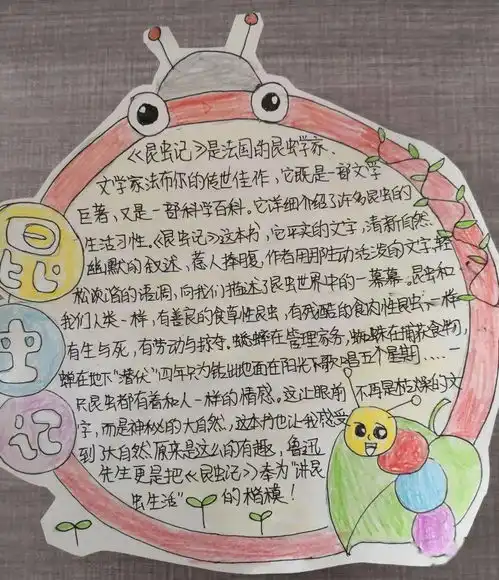 昆虫记
《昆虫记》是法国的昆虫学家、
文学家法布尔的传世佳作，它既是一部文学
巨著，又是一部科学百科。它详细介绍了许多昆虫的
生活习性。《昆虫记》这本书，它平实的文字，清新自然
幽默的叙述，惹人捧腹，作者用那生动活泼的文字，轻
松诙谐的语调，向我们描述了昆虫世界中的一幕幕。昆虫和
我们人类一样，有善良的食草性昆虫，有残酷的食肉性昆虫，一样
有生与死，有劳动与掠夺。蟋蟀在管理家务，蜘蛛在捕获食物，
蝉在地下“潜伏”四年只为能出地面在阳光下歌唱五个星期……一
只昆虫都有着和人一样的情感。这让眼前不再是枯燥的文
字，而是神秘的大自然，这本书也让我感受
到了大自然原来是这么的有趣，鲁迅
先生更是把《昆虫记》奉为“讲昆
虫生活”的楷模！